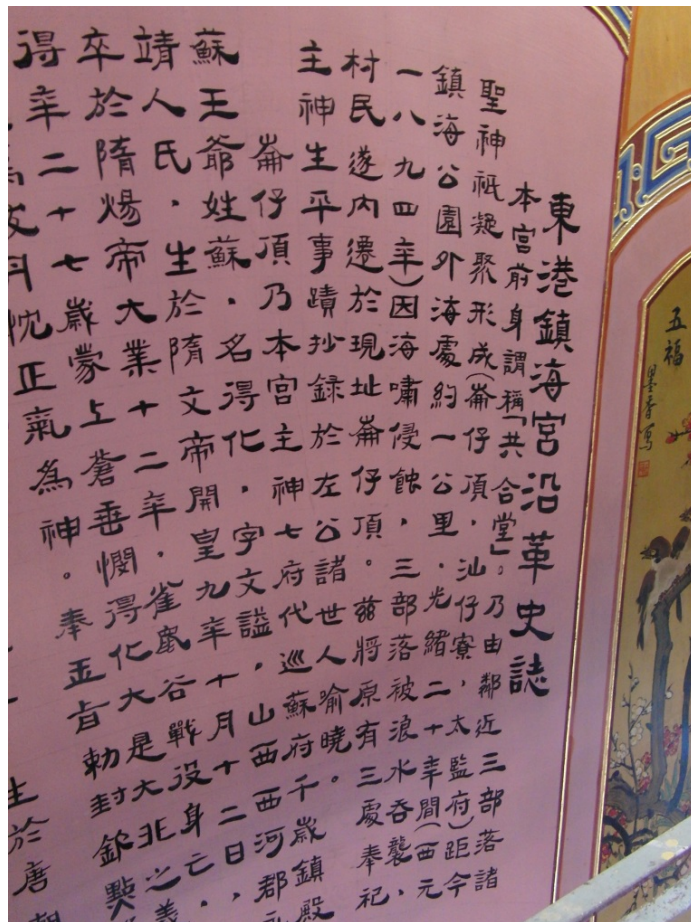 東港鎮海宮沿革史誌
本宮前身謂稱「共合堂」。乃由鄰近三部落諸
聖神祇凝聚形成(崙仔頂,汕仔寮,太監府)距今
鎮海公園外海處約一公里,光緒二十年間(西元
一八九四年)因海嘯侵蝕,三部落被浪水吞襲,
村民遂內遷於現址崙仔頂。茲將原有三處奉祀
主神生平事蹟抄錄於左公諸世人喻曉。
崙仔頂乃本宮主神七府代巡蘇府千歲鎮殿
蘇王爺姓蘇,名得化,字文謚,山西西河郡
靖人氏,生於隋文帝開皇九年十月十二日,
卒於隋煬帝大業十二年,雀鼠谷戰役身亡,
得年二十七歲蒙上蒼垂憫得化大是大非之義
忱正氣為神。奉玉旨勅封
生於唐朝
五福
墨香寫